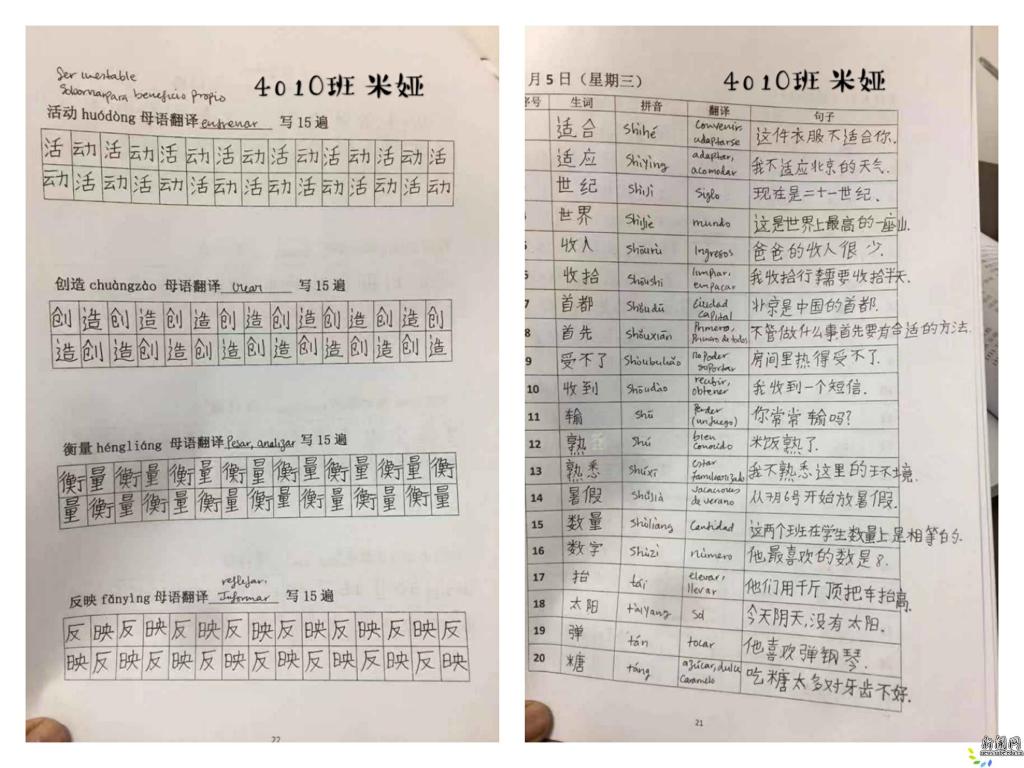 Ser inestable
Sobornar para beneficio propio
4010班 米娅
活动 huódòng 母语翻译 entrenar 写 15 遍
活 动 活 动 活 动 活 动 活 动 活 动 活 动 活
动 活 动 活 动 活 动 活 动 活 动 活 动 活 动
创造 chuàngzào 母语翻译 crear 写 15 遍
创 造 创 造 创 造 创 造 创 造 创 造 创 造 创
造 创 造 创 造 创 造 创 造 创 造 创 造 创 造
衡量 héngliáng 母语翻译 Pesar, analizar 写 15 遍
衡 量 衡 量 衡 量 衡 量 衡 量 衡 量 衡 量 衡
量 衡 量 衡 量 衡 量 衡 量 衡 量 衡 量 衡 量
reflejar,
反映 fǎnyìng 母语翻译 Informar 写 15 遍
反 映 反 映 反 映 反 映 反 映 反 映 反 映 反
映 反 映 反 映 反 映 反 映 反 映 反 映 反 映
22
月 5 日（星期三） 4010班 米娅
序号 生词 拼音 翻译 句子
适合 shìhé convenir, adaptarse 这件衣服不适合你.
适应 shìyìng adaptar, acomodar 我不适应北京的天气.
世纪 shìjì siglo 现在是二十一世纪.
世界 shìjiè mundo 这是世界上最高的一座山.
收入 shōurù Ingresos 爸爸的收入很少.
收拾 shōushi limpiar, empacar 我收拾行李需要收拾半天.
7 首都 shǒudū Ciudad capital 北京是中国的首都.
8 首先 shǒuxiān Primero, Primero de todos 不管做什么事首先要有合适的方法.
9 受不了 shòubuliǎo no poder soportar 房间里热得受不了.
10 收到 shōudào recibir, obtener 我收到一个短信.
11 输 shū Perder (un juego) 你常常输吗?
12 熟 shú bien conocido 米饭熟了.
13 熟悉 shúxī estar familiarizado 我不熟悉这里的环境.
14 暑假 shǔjià vacaciones de verano 从7月6号开始放暑假.
15 数量 shùliàng Cantidad 这两个班在学生数量上是相等的.
16 数字 shùzì número 他最喜欢的数是8.
17 抬 tái elevar, llevar 他们用千斤顶把车抬高.
18 太阳 tàiyang Sol 今天阴天,没有太阳.
19 弹 tán tocar 他喜欢弹钢琴.
20 糖 táng azúcar, dulce Caramelo 吃糖太多对牙齿不好.
21
新闻网